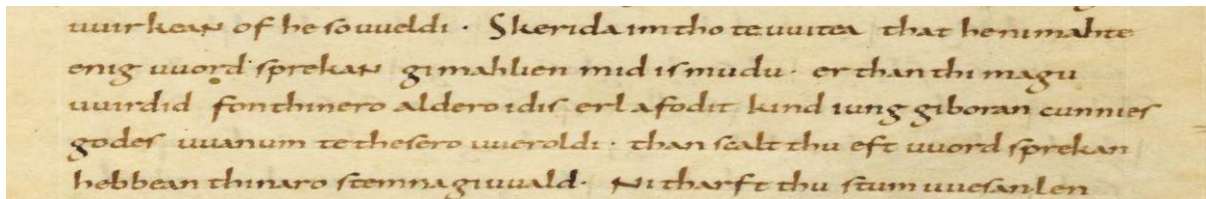 uuirkean of he so uueldi · Skerida im tho te uuitea that he ni mahte
enig uuord sprekan gimahlien mid is mudu · er than thi magu
uuirdid fon thinero aldero idis erl afodit kind iung giboran cunnies
godes uuanum te thesero uueroldi · than scalt thu eft uuord sprekan
hebbean thinaro stemna giuuald · Ni tharft thu stum uuesan len